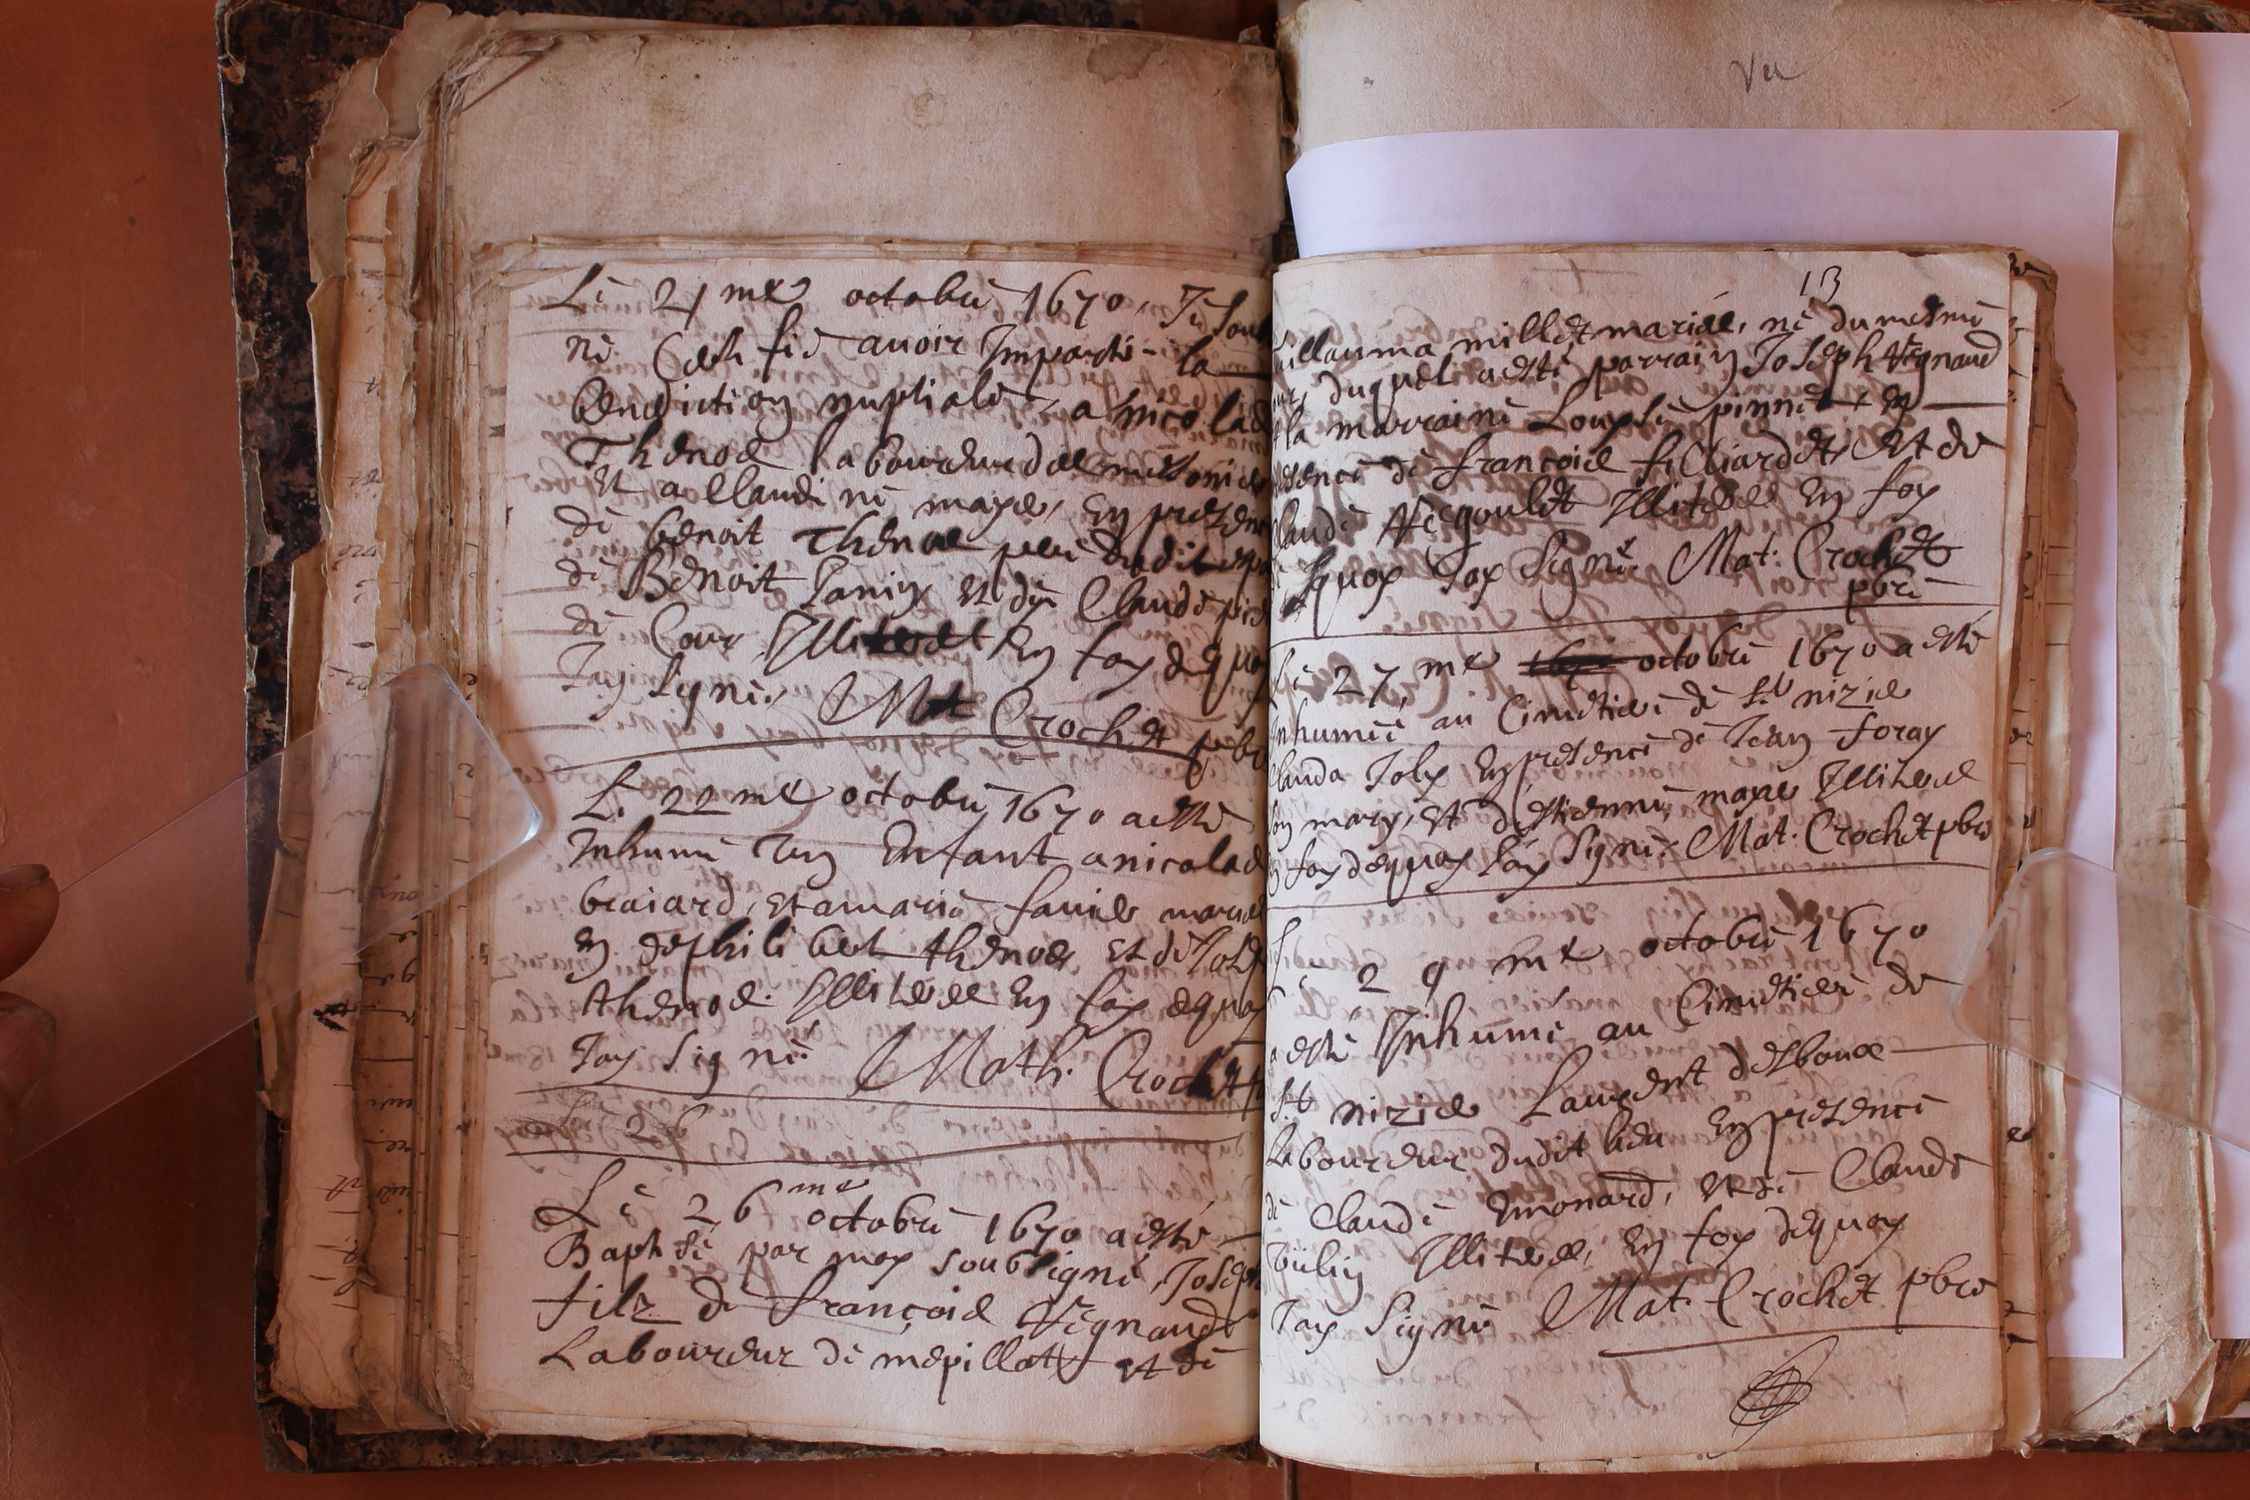 Le 21me octobre 1670, Je soub
ne Certifie avoir Imparti la
benediction nuptiale, a nicolas
Thenod laboureur de
Et a Claudine maye, En presen
de benoit Thenod pere dudit
de Benoit Janin Et de Claude
de Cour Illiteres En foy dequoy
Jay signé, Mat Crochet pbr
Le 22me octobre 1670 a esté
Inhumé Un Enfant a nicolas
braiard, et a marie favier mariés
En de philibert thenod, Et de Jose
thenod. Illiteres En foy dequoy
Jay signé Math. Crochet p
Le 26
Le 26me octobre 1670 a esté
Baptisé par moy soubsigné, Joseph
filz de françois Regnaud
Laboureur de mepillat et de
Vu
13
uillauma millet mariés, né du mesme
jour, duquel a esté parrain Joseph Regnaud
Et la marraine Loupse pinnet, En
presence de françois filliardet, Et de
Claude Regoulet Illiteres En foy
dequoy Jay Signé Mat: Crochet
pbre
Le 27me 1670 octobre 1670 a esté
Inhumée au Cimetiere de St nizier
Clauda Joly En presence de Jean foray
son mary, et d'estienne maye Illiteres
En foy dequoy Jay Signé. Mat. Crochet pbre
Le 29me octobre 1670
a esté Inhumé au Cimetiere de
St nizier Laurent desbous
Laboureur dudit lieu En presence
de Claude Emonard, et de Claude
Illiteres, En foy dequoy
Jay Signé Mat. Crochet pbre